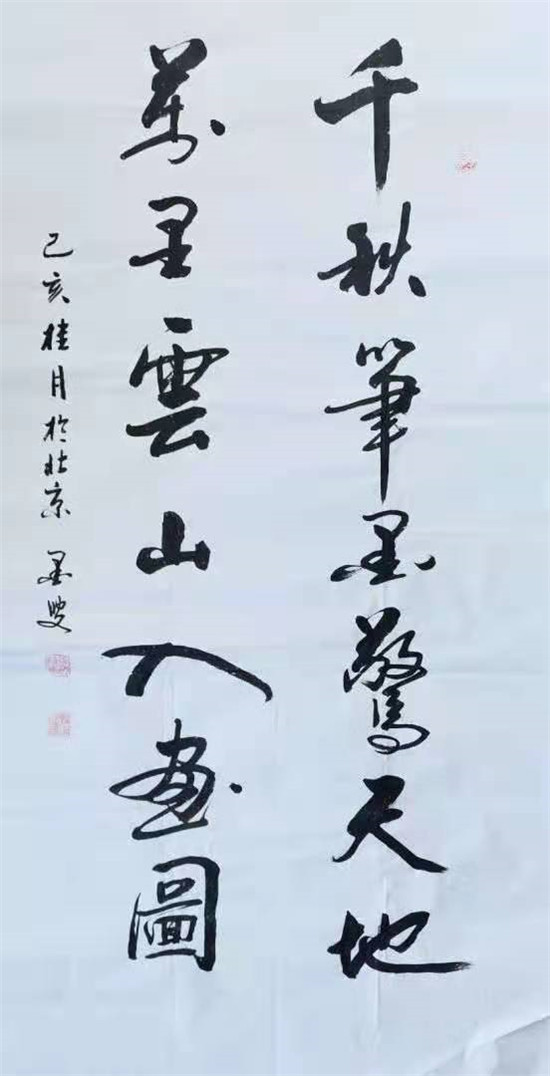 千秋筆墨驚天地
萬里雲山入畫圖
己亥桂月於北京 墨叟